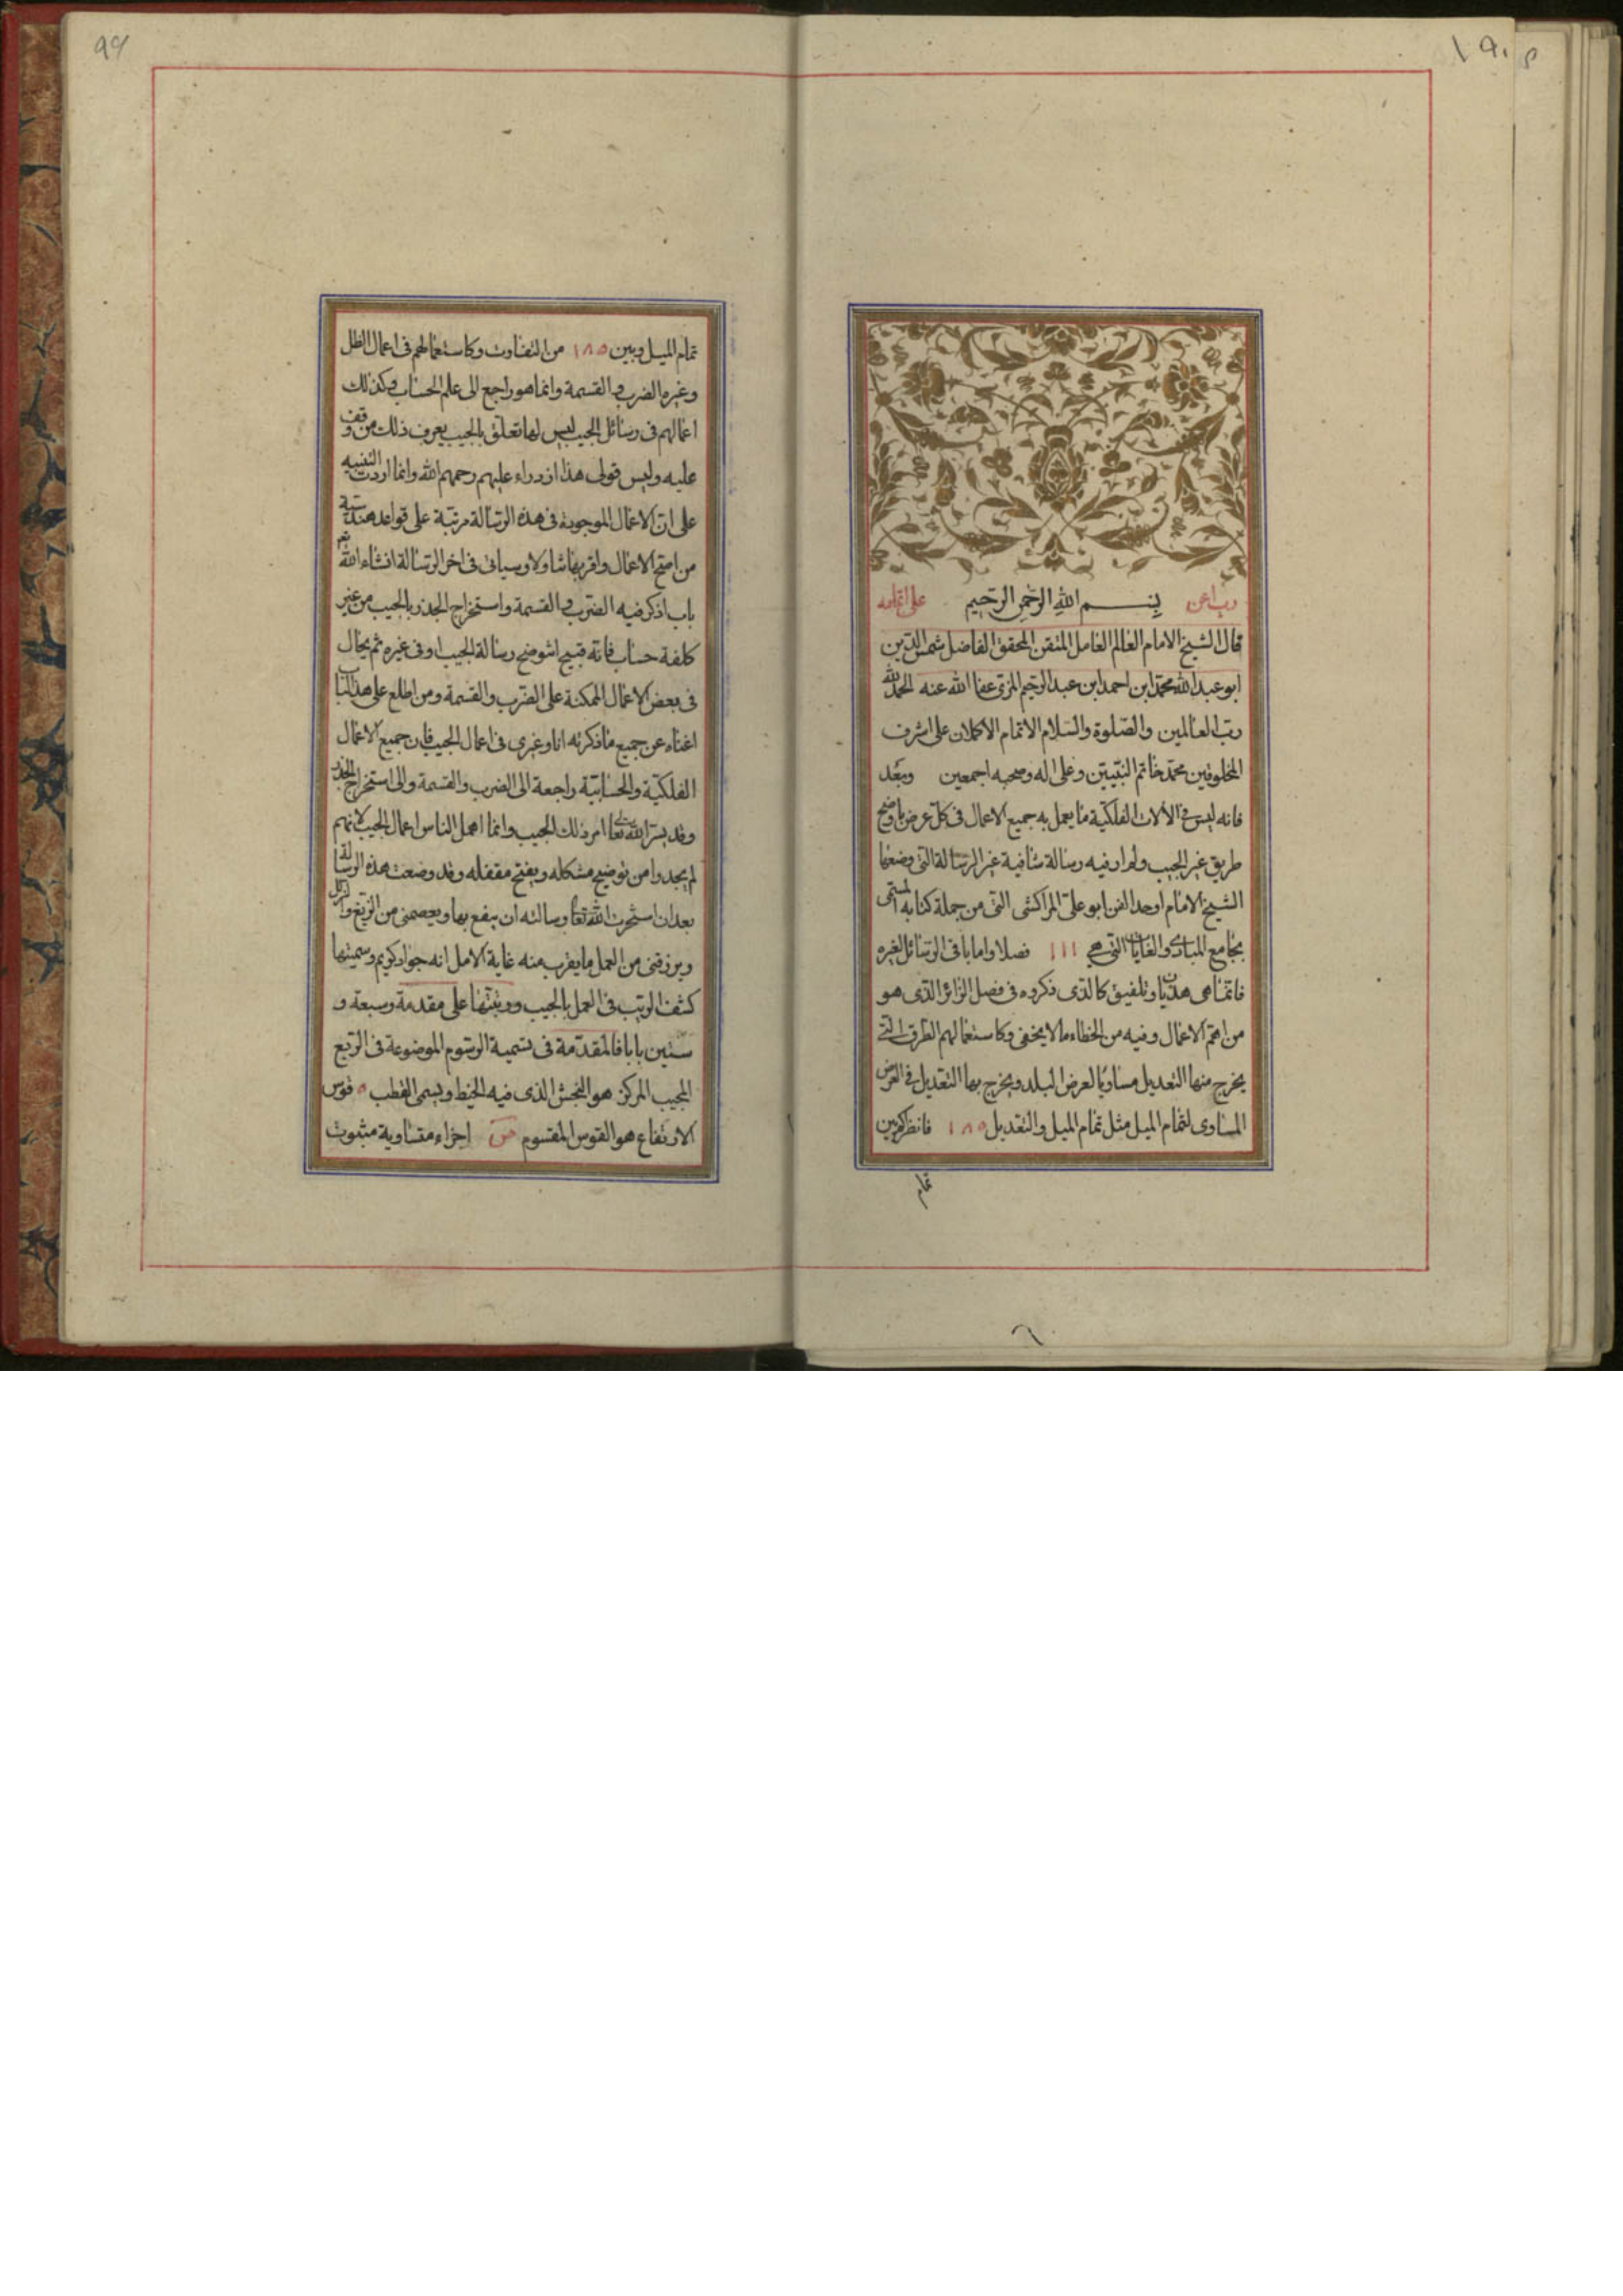 رب اعن بسم الله الرحمن الرحيم على اتمامه
قال الشيخ الامام العالم العامل المتقن المحقق الفاضل شمس الدين
ابو عبد الله محمد ابن احمد ابن عبد الرحيم المزى عفا الله عنه الحمد لله
رب العالمين والصلوة والسلام الاتمام الاكملان على اشرف
المخلوقين محمد خاتم النبيين وعلى اله وصحبه اجمعين وبعد
فانه ليس فى الالات الفلكية ما يعمل به جميع الاعمال فى كل عرض باوضح
طريق غير الجيب ولم ار فيه رسالة شافية غير الرسالة التى وضعها
الشيخ الامام اوحد الفن ابو على المراكشى التى من جملة كتابه المسمى
بجامع المبادى والغايات التى هى ١١١ فصلا واما باقى الرسائل الغيره
فانما هى هذيان او تلفيق كالذى ذكروه فى فصل الزائر الذى هو
من اهم الاعمال وفيه من الخطاء ما لا يخفى وكاستعمالهم الطرق التى
يخرج منها التعديل مساويا لعرض البلد ويخرج بها التعديل فى العرض
المساوى لتمام الميل مثل تمام الميل والتعديل ١٨٥ فانظر كم بين
تمام
تمام الميل وبين ١٨٥ من التفاوت وكاستعمالهم فى اعمال الظل
وغيره الضرب والقسمة وانما هو راجع الى علم الحساب وكذلك
اعمالهم فى رسائل الجيب ليس لها تعلق بالجيب يعرف ذلك من وقف
عليه وليس قولى هذا ازدراء عليهم رحمهم الله وانما اردت التنبيه
على ان الاعمال الموجودة فى هذه الرسالة مرتبة على قواعد هندسية
من اصح الاعمال واقربها تناولا وسياتى فى اخر الرسالة انشاء الله تعم
باب اذكر فيه الضرب والقسمة واستخراج الجذر بالجيب من غير
كلفة حساب فانه قبيح ان توضح رسالة الجيب او فى غيره ثم يحال
فى بعض الاعمال الممكنة على الضرب والقسمة ومن اطلع على هذا الباب
اغناه عن جميع ما ذكرته انا وغيرى فى اعمال الجيب فان جميع الاعمال
الفلكية والحسابية راجعة الى الضرب والقسمة والى استخراج الجذر
وقد يسر الله تعالى امر ذلك الجيب وانما اهمل الناس اعمال الجيب لانهم
لم يجدوا من توضيح مشكله ويفتح مقفله وقد وضعت هذه الرسالة
بعد ان استخرت الله تعالى وسالته ان ينفع بها ويعصمنى من الزيغ والزلل
ويرزقنى من العمل ما يقرب منه غاية الامل انه جواد كريم وسميتها
كشف الريب فى العمل بالجيب ورتبتها على مقدمة وسبعة و
ستين بابا فالمقدمة فى تسمية الرسوم الموضوعة فى الربع
المجيب المركز هو البخش الذى فيه الخيط ويسمى القطب ٥ قوس
الارتفاع هو القوس المقسوم ص اجزاء متساوية مثبوت